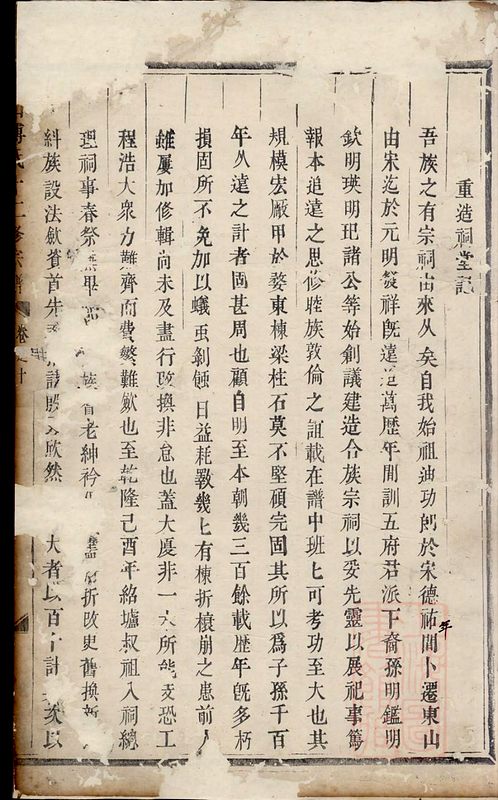 重造祠堂記
吾族之有宗祠由來久矣自我始祖迪功郎於宋德祐間卜遷東山
年
由宋迄於元明發祥旣遠追萬歷年間訓五府君派下裔孫明鑑明
欽明瑛明玘諸公等始創議建造合族宗祠以妥先靈以展祀事篤
報本追遠之思修睢族敦倫之誼載在譜中班匕可考功至大也其
規模宏厰甲於婺東棟梁柱石莫不堅碩完固其所以爲子孫千百
年久遠之計者固甚周也顧自明至本朝幾三百餘載歴年旣多朽
損固所不免加以蟻虫剝蝕日益耗斁幾匕有棟折榱崩之患前人
雖屢加修輯尚未及盡行改換非怠也蓋大廈非一木所能支恐工
程浩大衆力難齊而費繁難歛也至乾隆己酉年絡墟叔祖入祠總
理祠事春祭 畢 族 老紳衿 蠹 折改更舊換新
糾族設法歛貲首先 欣然 大者以百千計 次以
傅氏 修宗譜 卷